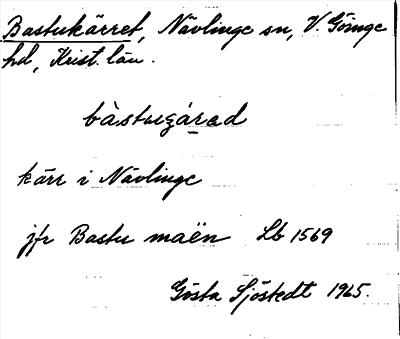 Bastukärret, Nävlinge sn, V. Göinge
hd, Krist. län.
bàstugárad
kärr i Nävlinge
jfr Bastu maën Lb 1569
Gösta Sjöstedt 1965.